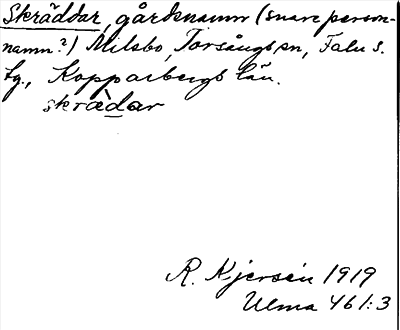 Skräddar, gårdsnamn (snare person-
namn?) Milsbo, Torsångs sn, Falu s.
tg., Kopparbergs län.
skrädar
R. Kjersén 1919
Ulma 461:3